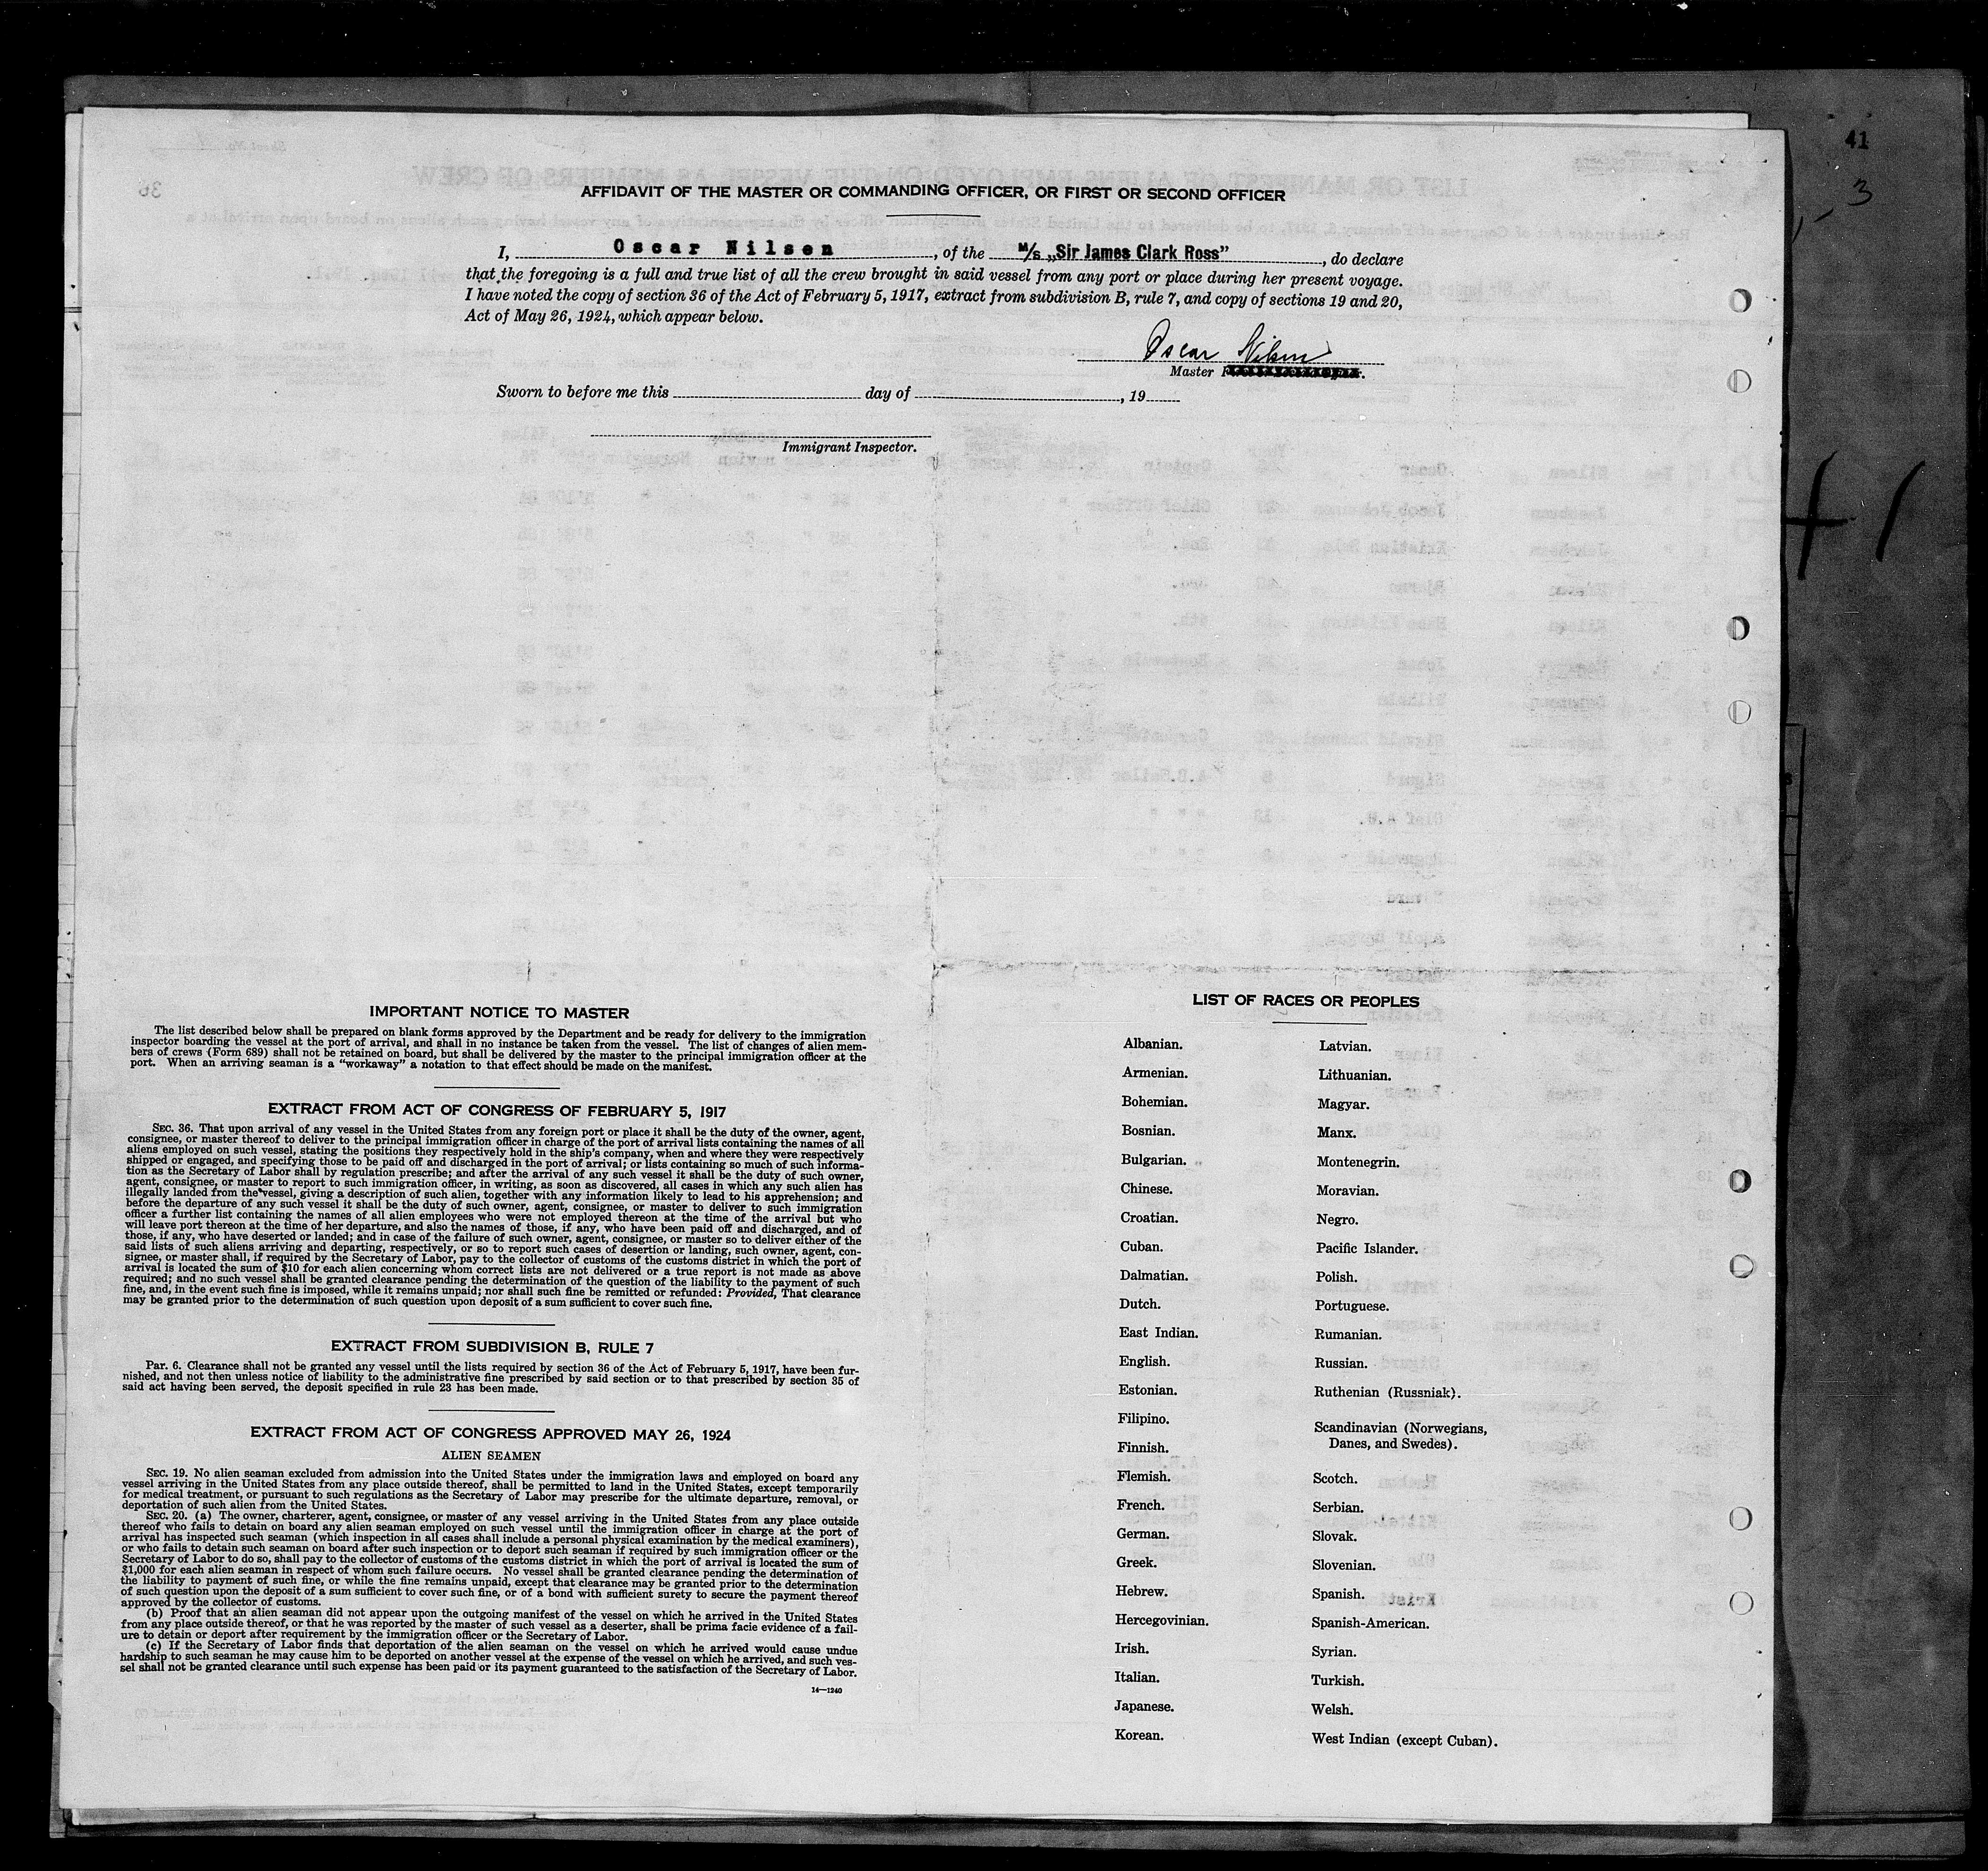 41
3
AFFIDAVIT OF THE MASTER OR COMMANDING OFFICER, OR FIRST OR SECOND OFFICER
I, Oscar Nilsen, of the M/s „Sir James Clark Ross”, do declare
that the foregoing is a full and true list of all the crew brought in said vessel from any port or place during her present voyage.
I have noted the copy of section 36 of the Act of February 5, 1917, extract from subdivision B, rule 7, and copy of sections 19 and 20,
Act of May 26, 1924, which appear below.
Oscar Nilsen
Master
Sworn to before me this day of , 19
Immigrant Inspector.
IMPORTANT NOTICE TO MASTER
The list described below shall be prepared on blank forms approved by the Department and be ready for delivery to the immigration
inspector boarding the vessel at the port of arrival, and shall in no instance be taken from the vessel. The list of changes of alien mem-
bers of crews (Form 689) shall not be retained on board, but shall be delivered by the master to the principal immigration officer at the
port. When an arriving seaman is a “workaway” a notation to that effect should be made on the manifest.
EXTRACT FROM ACT OF CONGRESS OF FEBRUARY 5, 1917
SEC. 36. That upon arrival of any vessel in the United States from any foreign port or place it shall be the duty of the owner, agent,
consignee, or master thereof to deliver to the principal immigration officer in charge of the port of arrival lists containing the names of all
aliens employed on such vessel, stating the positions they respectively hold in the ship's company, when and where they were respectively
shipped or engaged, and specifying those to be paid off and discharged in the port of arrival; or lists containing so much of such informa-
tion as the Secretary of Labor shall by regulation prescribe; and after the arrival of any such vessel it shall be the duty of such owner,
agent, consignee, or master to report to such immigration officer, in writing, as soon as discovered, all cases in which any such alien has
illegally landed from the vessel, giving a description of such alien, together with any information likely to lead to his apprehension; and
before the departure of any such vessel it shall be the duty of such owner, agent, consignee, or master to deliver to such immigration
officer a further list containing the names of all alien employees who were not employed thereon at the time of the arrival but who
will leave port thereon at the time of her departure, and also the names of those, if any, who have been paid off and discharged, and of
those, if any, who have deserted or landed; and in case of the failure of such owner, agent, consignee, or master so to deliver either of the
said lists of such aliens arriving and departing, respectively, or so to report such cases of desertion or landing, such owner, agent, con-
signee, or master shall, if required by the Secretary of Labor, pay to the collector of customs of the customs district in which the port of
arrival is located the sum of $10 for each alien concerning whom correct lists are not delivered or a true report is not made as above
required; and no such vessel shall be granted clearance pending the determination of the question of the liability to the payment of such
fine, and, in the event such fine is imposed, while it remains unpaid; nor shall such fine be remitted or refunded: Provided, That clearance
may be granted prior to the determination of such question upon deposit of a sum sufficient to cover such fine.
EXTRACT FROM SUBDIVISION B, RULE 7
Par. 6. Clearance shall not be granted any vessel until the lists required by section 36 of the Act of February 5, 1917, have been fur-
nished, and not then unless notice of liability to the administrative fine prescribed by said section or to that prescribed by section 35 of
said act having been served, the deposit specified in rule 23 has been made.
EXTRACT FROM ACT OF CONGRESS APPROVED MAY 26, 1924
ALIEN SEAMEN
SEC. 19. No alien seaman excluded from admission into the United States under the immigration laws and employed on board any
vessel arriving in the United States from any place outside thereof, shall be permitted to land in the United States, except temporarily
for medical treatment, or pursuant to such regulations as the Secretary of Labor may prescribe for the ultimate departure, removal, or
deportation of such alien from the United States.
SEC. 20. (a) The owner, charterer, agent, consignee, or master of any vessel arriving in the United States from any place outside
thereof who fails to detain on board any alien seaman employed on such vessel until the immigration officer in charge at the port of
arrival has inspected such seaman (which inspection in all cases shall include a personal physical examination by the medical examiners),
or who fails to detain such seaman on board after such inspection or to deport such seaman if required by such immigration officer or the
Secretary of Labor to do so, shall pay to the collector of customs of the customs district in which the port of arrival is located the sum of
$1,000 for each alien seaman in respect of whom such failure occurs. No vessel shall be granted clearance pending the determination of
the liability to payment of such fine, or while the fine remains unpaid, except that clearance may be granted prior to the determination
of such question upon the deposit of a sum sufficient to cover such fine, or of a bond with sufficient surety to secure the payment thereof
approved by the collector of customs.
(b) Proof that an alien seaman did not appear upon the outgoing manifest of the vessel on which he arrived in the United States
from any place outside thereof, or that he was reported by the master of such vessel as a deserter, shall be prima facie evidence of a fail-
ure to detain or deport after requirement by the immigration officer or the Secretary of Labor.
(c) If the Secretary of Labor finds that deportation of the alien seaman on the vessel on which he arrived would cause undue
hardship to such seaman he may cause him to be deported on another vessel at the expense of the vessel on which he arrived, and such ves-
sel shall not be granted clearance until such expense has been paid or its payment guaranteed to the satisfaction of the Secretary of Labor.
14—1240
LIST OF RACES OR PEOPLES
Albanian.
Armenian.
Bohemian.
Bosnian.
Bulgarian.
Chinese.
Croatian.
Cuban.
Dalmatian.
Dutch.
East Indian.
English.
Estonian.
Filipino.
Finnish.
Flemish.
French.
German.
Greek.
Hebrew.
Hercegovinian.
Irish.
Italian.
Japanese.
Korean.
Latvian.
Lithuanian.
Magyar.
Manx.
Montenegrin.
Moravian.
Negro.
Pacific Islander.
Polish.
Portuguese.
Rumanian.
Russian.
Ruthenian (Russniak).
Scandinavian (Norwegians,
Danes, and Swedes).
Scotch.
Serbian.
Slovak.
Slovenian.
Spanish.
Spanish-American.
Syrian.
Turkish.
Welsh.
West Indian (except Cuban).